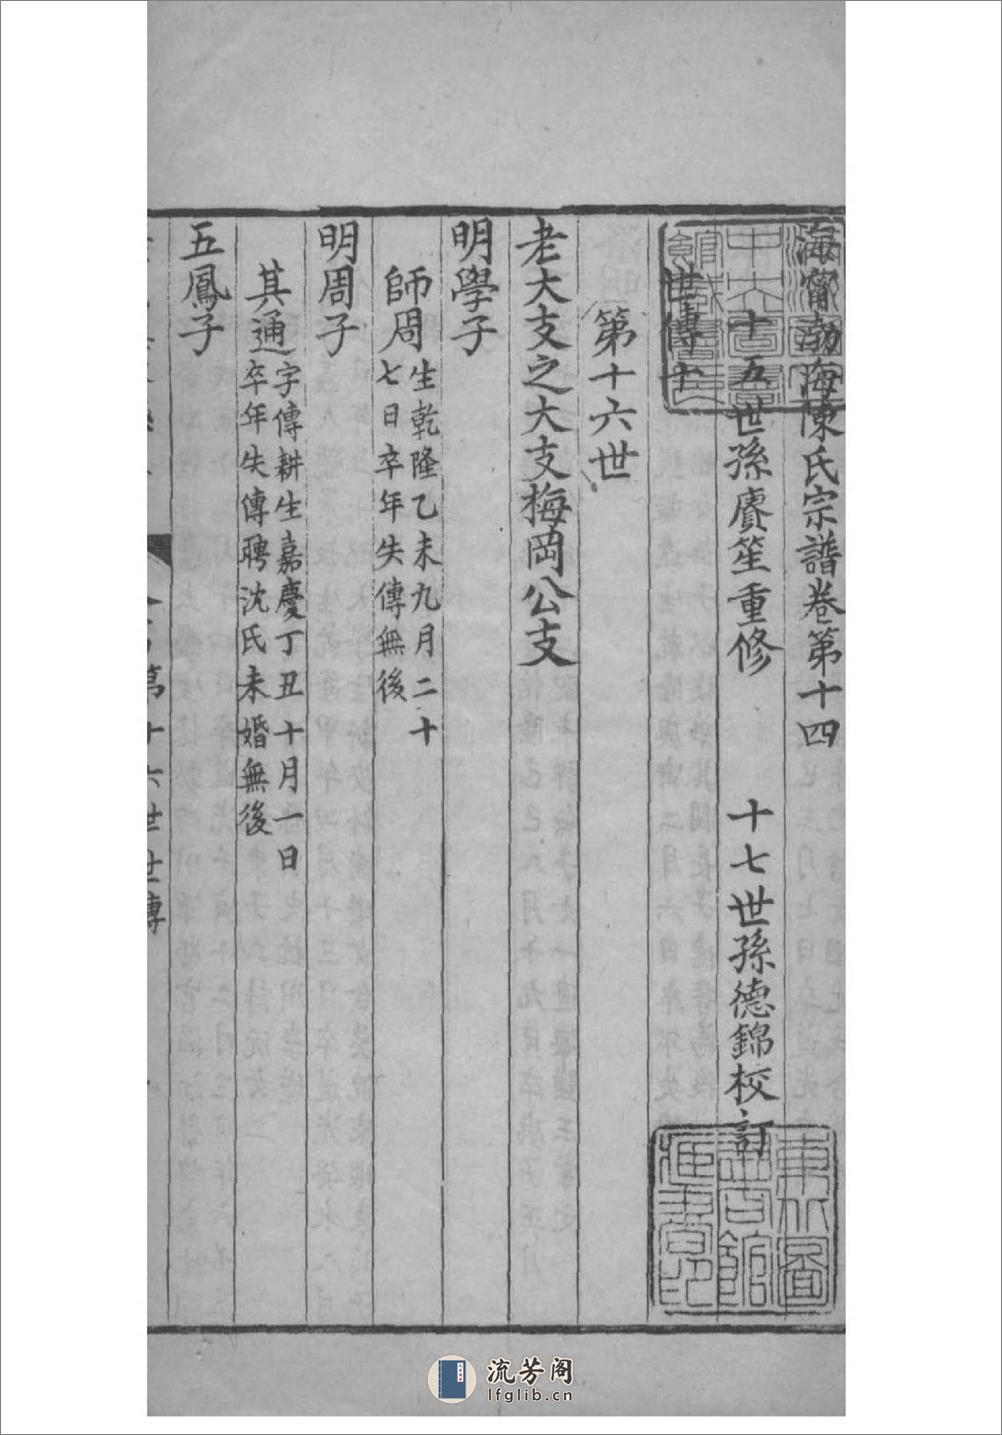 海甯渤海陳氏宗譜卷第十四
十五世孫賡笙重修　十七世孫德錦校訂
世傳十
第十六世
老大支之大支梅岡公支
明學子
師周 生乾隆乙未九月二十
七日卒年失傳無後
明周子
其通 字傳耕生嘉慶丁丑十月一日
卒年失傳聘沈氏未婚無後
五鳳子
第十六世世傳
東北圖
書館所
藏善本
流芳阁
lfglib.cn